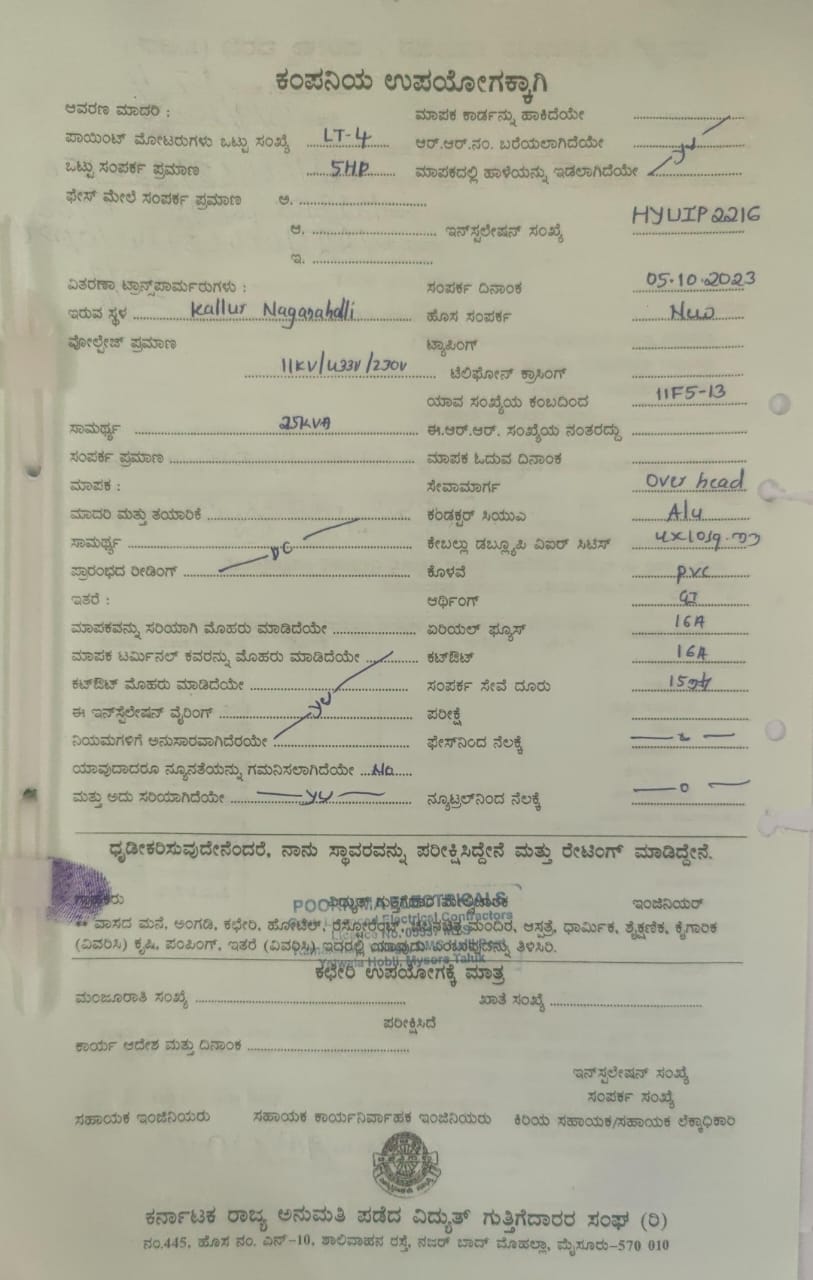 ಕಂಪನಿಯ ಉಪಯೋಗಕ್ಕಾಗಿ
ಆವರಣ ಮಾದರಿ : ಮಾಪಕ ಕಾರ್ಡನ್ನು ಹಾಕಿದೆಯೇ
ಪಾಯಿಂಟ್ ಮೋಟರುಗಳು ಒಟ್ಟು ಸಂಖ್ಯೆ LT-4 ಆರ್.ಆರ್.ನಂ. ಬರೆಯಲಾಗಿದೆಯೇ
ಒಟ್ಟು ಸಂಪರ್ಕ ಪ್ರಮಾಣ 5HP ಮಾಪಕದಲ್ಲಿ ಹಾಳೆಯನ್ನು ಇಡಲಾಗಿದೆಯೇ
ಫೇಸ್ ಮೇಲೆ ಸಂಪರ್ಕ ಪ್ರಮಾಣ ಅ.
ಆ. ಇನ್‌ಸ್ಟಲೇಷನ್ ಸಂಖ್ಯೆ HYUIP2216
ಇ.
ವಿತರಣಾ ಟ್ರಾನ್ಸ್‌ಪಾರ್ಮರುಗಳು : ಸಂಪರ್ಕ ದಿನಾಂಕ 05.10.2023
ಇರುವ ಸ್ಥಳ Kallur Naganahalli ಹೊಸ ಸಂಪರ್ಕ
ವೋಲ್ಟೇಜ್ ಪ್ರಮಾಣ ಟ್ಯಾಪಿಂಗ್
11KV/433V/230V ಟೆಲಿಫೋನ್ ಕ್ರಾಸಿಂಗ್
ಯಾವ ಸಂಖ್ಯೆಯ ಕಂಬದಿಂದ 11F5-13
ಸಾಮರ್ಥ್ಯ 25KVA ಈ.ಆರ್.ಆರ್. ಸಂಖ್ಯೆಯ ನಂತರದ್ದು
ಸಂಪರ್ಕ ಪ್ರಮಾಣ ಮಾಪಕ ಓದುವ ದಿನಾಂಕ
ಮಾಪಕ : ಸೇವಾಮಾರ್ಗ Over head
ಮಾದರಿ ಮತ್ತು ತಯಾರಿಕೆ ಕಂಡಕ್ಟರ್ ಸಿಯುಎ Alu
ಸಾಮರ್ಥ್ಯ ಕೇಬಲ್ಲು ಡಬ್ಲ್ಯೂಪಿ ವಿಐರ್ ಸಿಟಿಸ್ 4x10sq.mm
ಪ್ರಾರಂಭದ ರೀಡಿಂಗ್ DC ಕೊಳವೆ PVC
ಇತರೆ : ಆರ್ಥಿಂಗ್ GI
ಮಾಪಕವನ್ನು ಸರಿಯಾಗಿ ಮೊಹರು ಮಾಡಿದೆಯೇ ಏರಿಯಲ್ ಫ್ಯೂಸ್ 16A
ಮಾಪಕ ಟರ್ಮಿನಲ್ ಕವರನ್ನು ಮೊಹರು ಮಾಡಿದೆಯೇ ಕಟ್‌ಔಟ್ 16A
ಕಟ್‌ಔಟ್ ಮೊಹರು ಮಾಡಿದೆಯೇ ಸಂಪರ್ಕ ಸೇವೆ ದೂರು
ಈ ಇನ್‌ಸ್ಟೆಲೇಷನ್ ವೈರಿಂಗ್ ಪರೀಕ್ಷೆ
ನಿಯಮಗಳಿಗೆ ಅನುಸಾರವಾಗಿದೆರಯೇ ಫೇಸ್‌ನಿಂದ ನೆಲಕ್ಕೆ
ಯಾವುದಾದರೂ ನ್ಯೂನತೆಯನ್ನು ಗಮನಿಸಲಾಗಿದೆಯೇ No
ಮತ್ತು ಅದು ಸರಿಯಾಗಿದೆಯೇ ನ್ಯೂಟ್ರಲ್‌ನಿಂದ ನೆಲಕ್ಕೆ 0
ಧೃಡೀಕರಿಸುವುದೇನೆಂದರೆ, ನಾನು ಸ್ಥಾವರವನ್ನು ಪರೀಕ್ಷಿಸಿದ್ದೇನೆ ಮತ್ತು ರೇಟಿಂಗ್ ಮಾಡಿದ್ದೇನೆ.
ಗ್ರಾಹಕರು ವಿದ್ಯುತ್ ಗುತ್ತಿಗೆದಾರ ಇಂಜಿನಿಯರ್
** ವಾಸದ ಮನೆ, ಅಂಗಡಿ, ಕಛೇರಿ, ಹೋಟೆಲ್, ರೆಸ್ಟೋರೆಂಟ್, ಚಲನಚಿತ್ರ ಮಂದಿರ, ಆಸ್ಪತ್ರೆ, ಧಾರ್ಮಿಕ, ಶೈಕ್ಷಣಿಕ, ಕೈಗಾರಿಕ
(ವಿವರಿಸಿ) ಕೃಷಿ, ಪಂಪಿಂಗ್, ಇತರೆ (ವಿವರಿಸಿ) ಇದರಲ್ಲಿ ಯಾವುದು ಎಂಬುವುದನ್ನು ತಿಳಿಸಿರಿ.
POORNIMA ELECTRICALS
Electrical Contractors
Yelwala Hobli, Mysore Taluk
ಕಛೇರಿ ಉಪಯೋಗಕ್ಕೆ ಮಾತ್ರ
ಮಂಜೂರಾತಿ ಸಂಖ್ಯೆ ಖಾತೆ ಸಂಖ್ಯೆ
ಪರೀಕ್ಷಿಸಿದೆ
ಕಾರ್ಯ ಆದೇಶ ಮತ್ತು ದಿನಾಂಕ
ಇನ್‌ಸ್ಟಲೇಷನ್ ಸಂಖ್ಯೆ
ಸಂಪರ್ಕ ಸಂಖ್ಯೆ
ಸಹಾಯಕ ಇಂಜಿನಿಯರು ಸಹಾಯಕ ಕಾರ್ಯನಿರ್ವಾಹಕ ಇಂಜಿನಿಯರು ಕಿರಿಯ ಸಹಾಯಕ/ಸಹಾಯಕ ಲೆಕ್ಕಾಧಿಕಾರಿ
ಕರ್ನಾಟಕ ರಾಜ್ಯ ಅನುಮತಿ ಪಡೆದ ವಿದ್ಯುತ್ ಗುತ್ತಿಗೆದಾರರ ಸಂಘ (ರಿ)
ನಂ.445, ಹೊಸ ನಂ. ಎನ್-10, ಶಾಲಿವಾಹನ ರಸ್ತೆ, ನಜರ್ ಬಾದ್ ಮೊಹಲ್ಲಾ, ಮೈಸೂರು-570 010